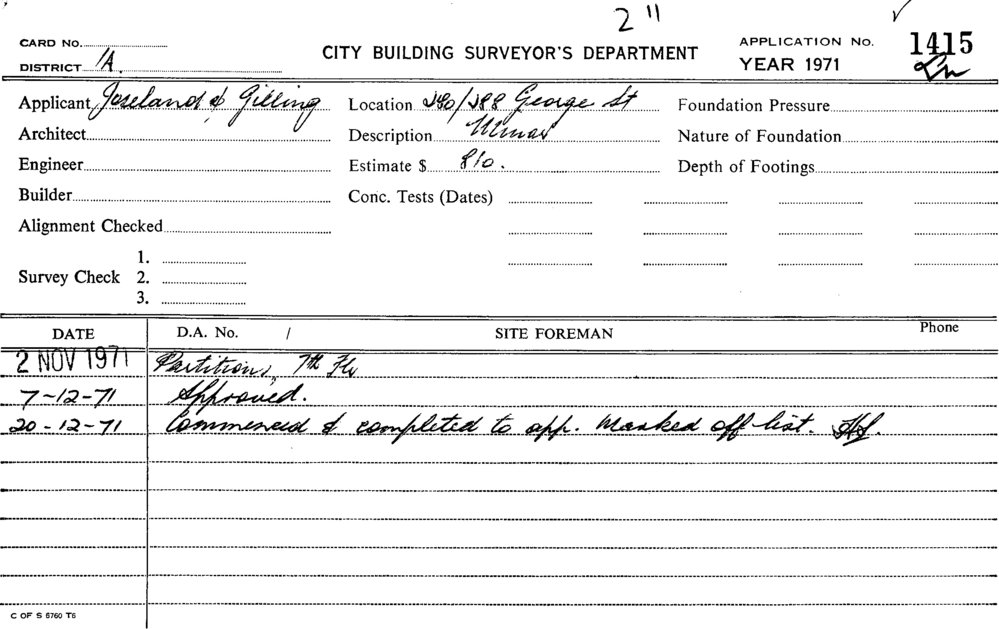 2"
CARD No.
DISTRICT 1A
CITY BUILDING SURVEYOR'S DEPARTMENT
APPLICATION No. 1415
YEAR 1971
Applicant Joseland & Gilling
Location George St
Foundation Pressure
Architect
Description Minor
Nature of Foundation
Engineer
Estimate $ 810.
Depth of Footings
Builder
Conc. Tests (Dates)
Alignment Checked
Survey Check
1.
2.
3.
DATE
D.A. No. /
SITE FOREMAN
Phone
2 NOV 1971 Partitions, 7th Flr
7-12-71 Approved.
20-12-71 Commenced & completed to app. Marked off list.
C OF S 6760 T6